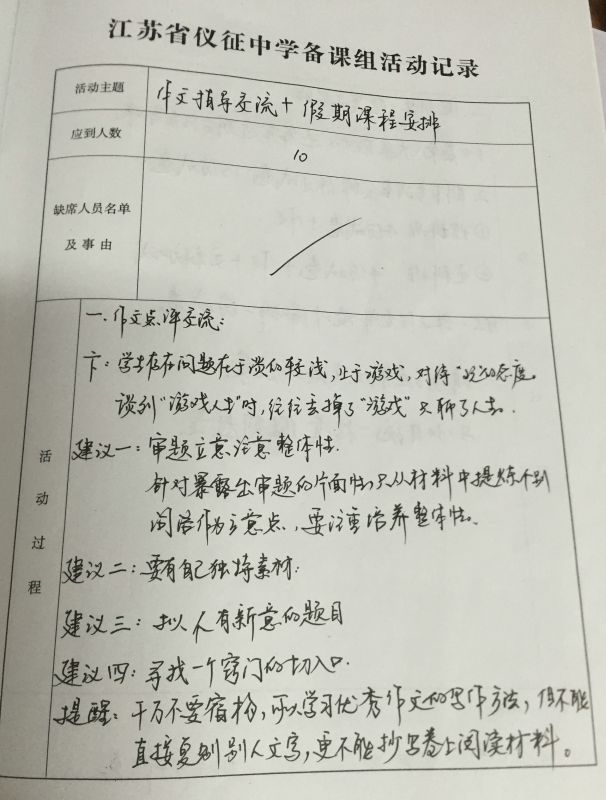 江苏省仪征中学备课组活动记录
活动主题
作文指导交流+假期课程安排
应到人数
10
缺席人员名单
及事由
活动过程
一.作文点评交流:
卞:学生存在问题在于谈的较浅,止于游戏,对待"玩"的态度。
谈到"游戏人生"时,往往去掉了"游戏"只聊了人生.
建议一:审题立意注意整体性.
针对暴露出审题的片面性,只从材料中提炼个别
词语作为立意点,要注重培养整体性。
建议二:要有自己独特素材.
建议三:拟 有新意的题目
建议四:寻找一个窍门的切入口.
提醒:千万不要宿构,可以学习优秀作文的写作方法,但不能
直接复制别人文字,更不能抄写卷上阅读材料。